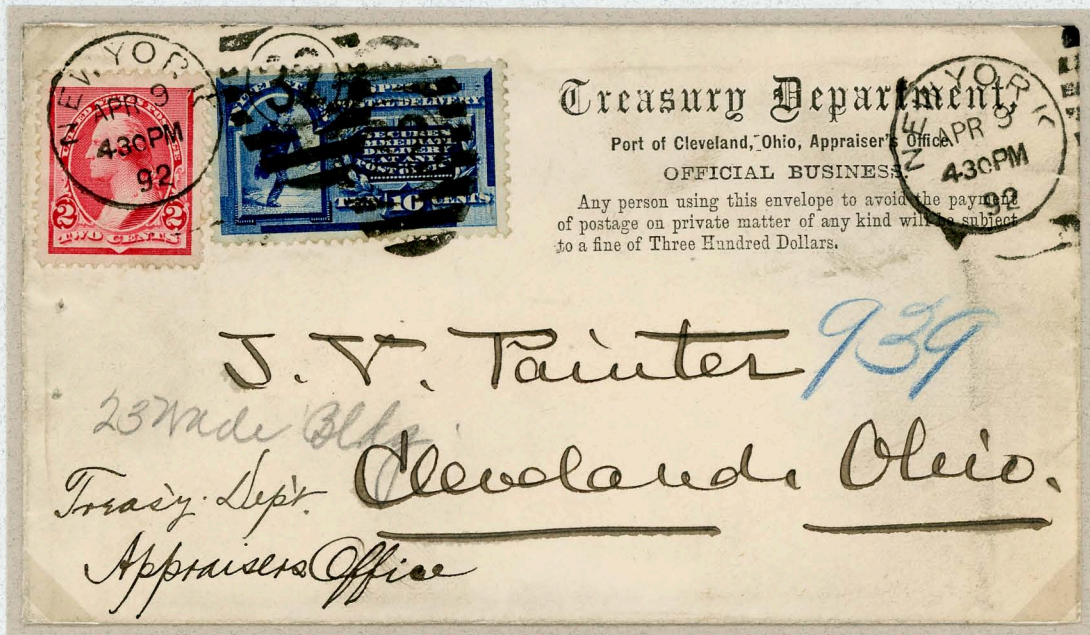 NEW YORK
APR 9
430PM
92
UNITED STATES POSTAGE
2 2
TWO CENTS
SPECIAL DELIVERY
SECURES
IMMEDIATE
DELIVERY
AT ANY
POST OFFICE
TEN 10 CENTS
Treasury Department,
Port of Cleveland, Ohio, Appraiser's Office.
OFFICIAL BUSINESS.
Any person using this envelope to avoid the payment
of postage on private matter of any kind will be subject
to a fine of Three Hundred Dollars.
NEW YORK
APR 9
430PM
92
J. V. Painter
939
23 Wade Bldg.
Cleveland, Ohio.
Treasy. Dept.
Appraisers Office